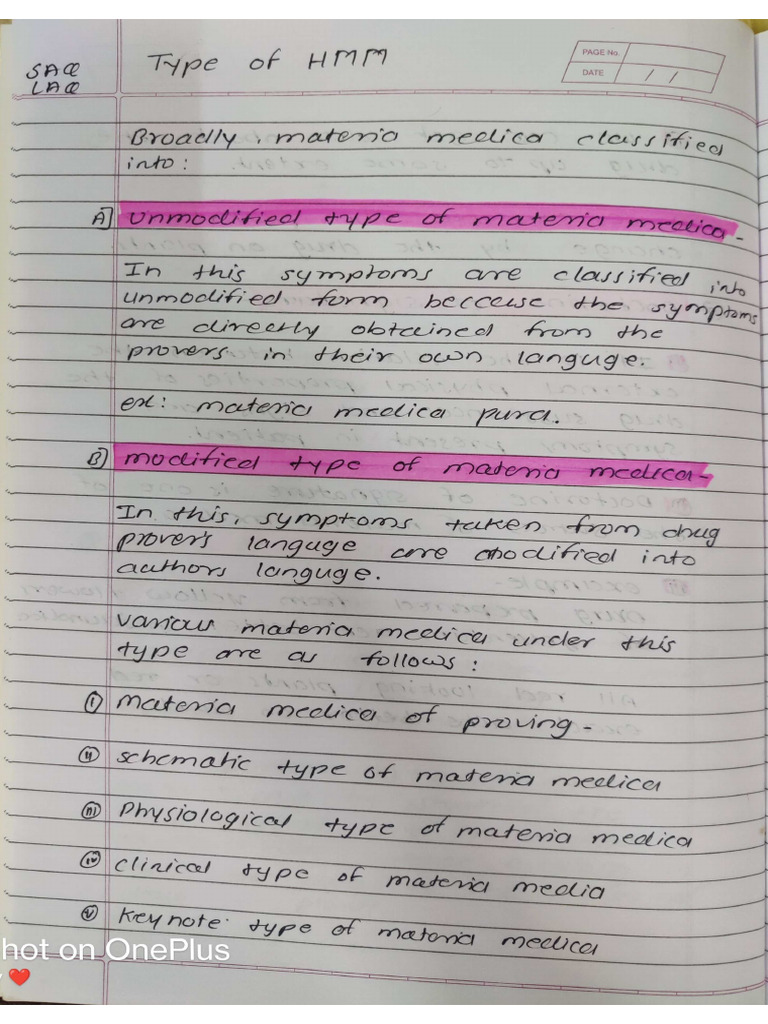 SAQ
LAQ
Type of HMM
PAGE No.
DATE / /
Broadly, materia medica classified
into:
A] unmodified type of materia medica -
In this symptoms are classified into
unmodified form beccause the symptoms
are directly obtained from the
provers in their own languge.
ex: materia medica pura.
B] modified type of materia medica -
In this, symptoms taken from drug
prover's languge are modified into
authors languge.
various materia medica under this
type are as follows:
(i) materia medica of proving -
(ii) schematic type of materia medica
(iii) Physiological type of materia medica
(iv) clinical type of materia media
(v) Keynote type of materia medica
hot on OnePlus